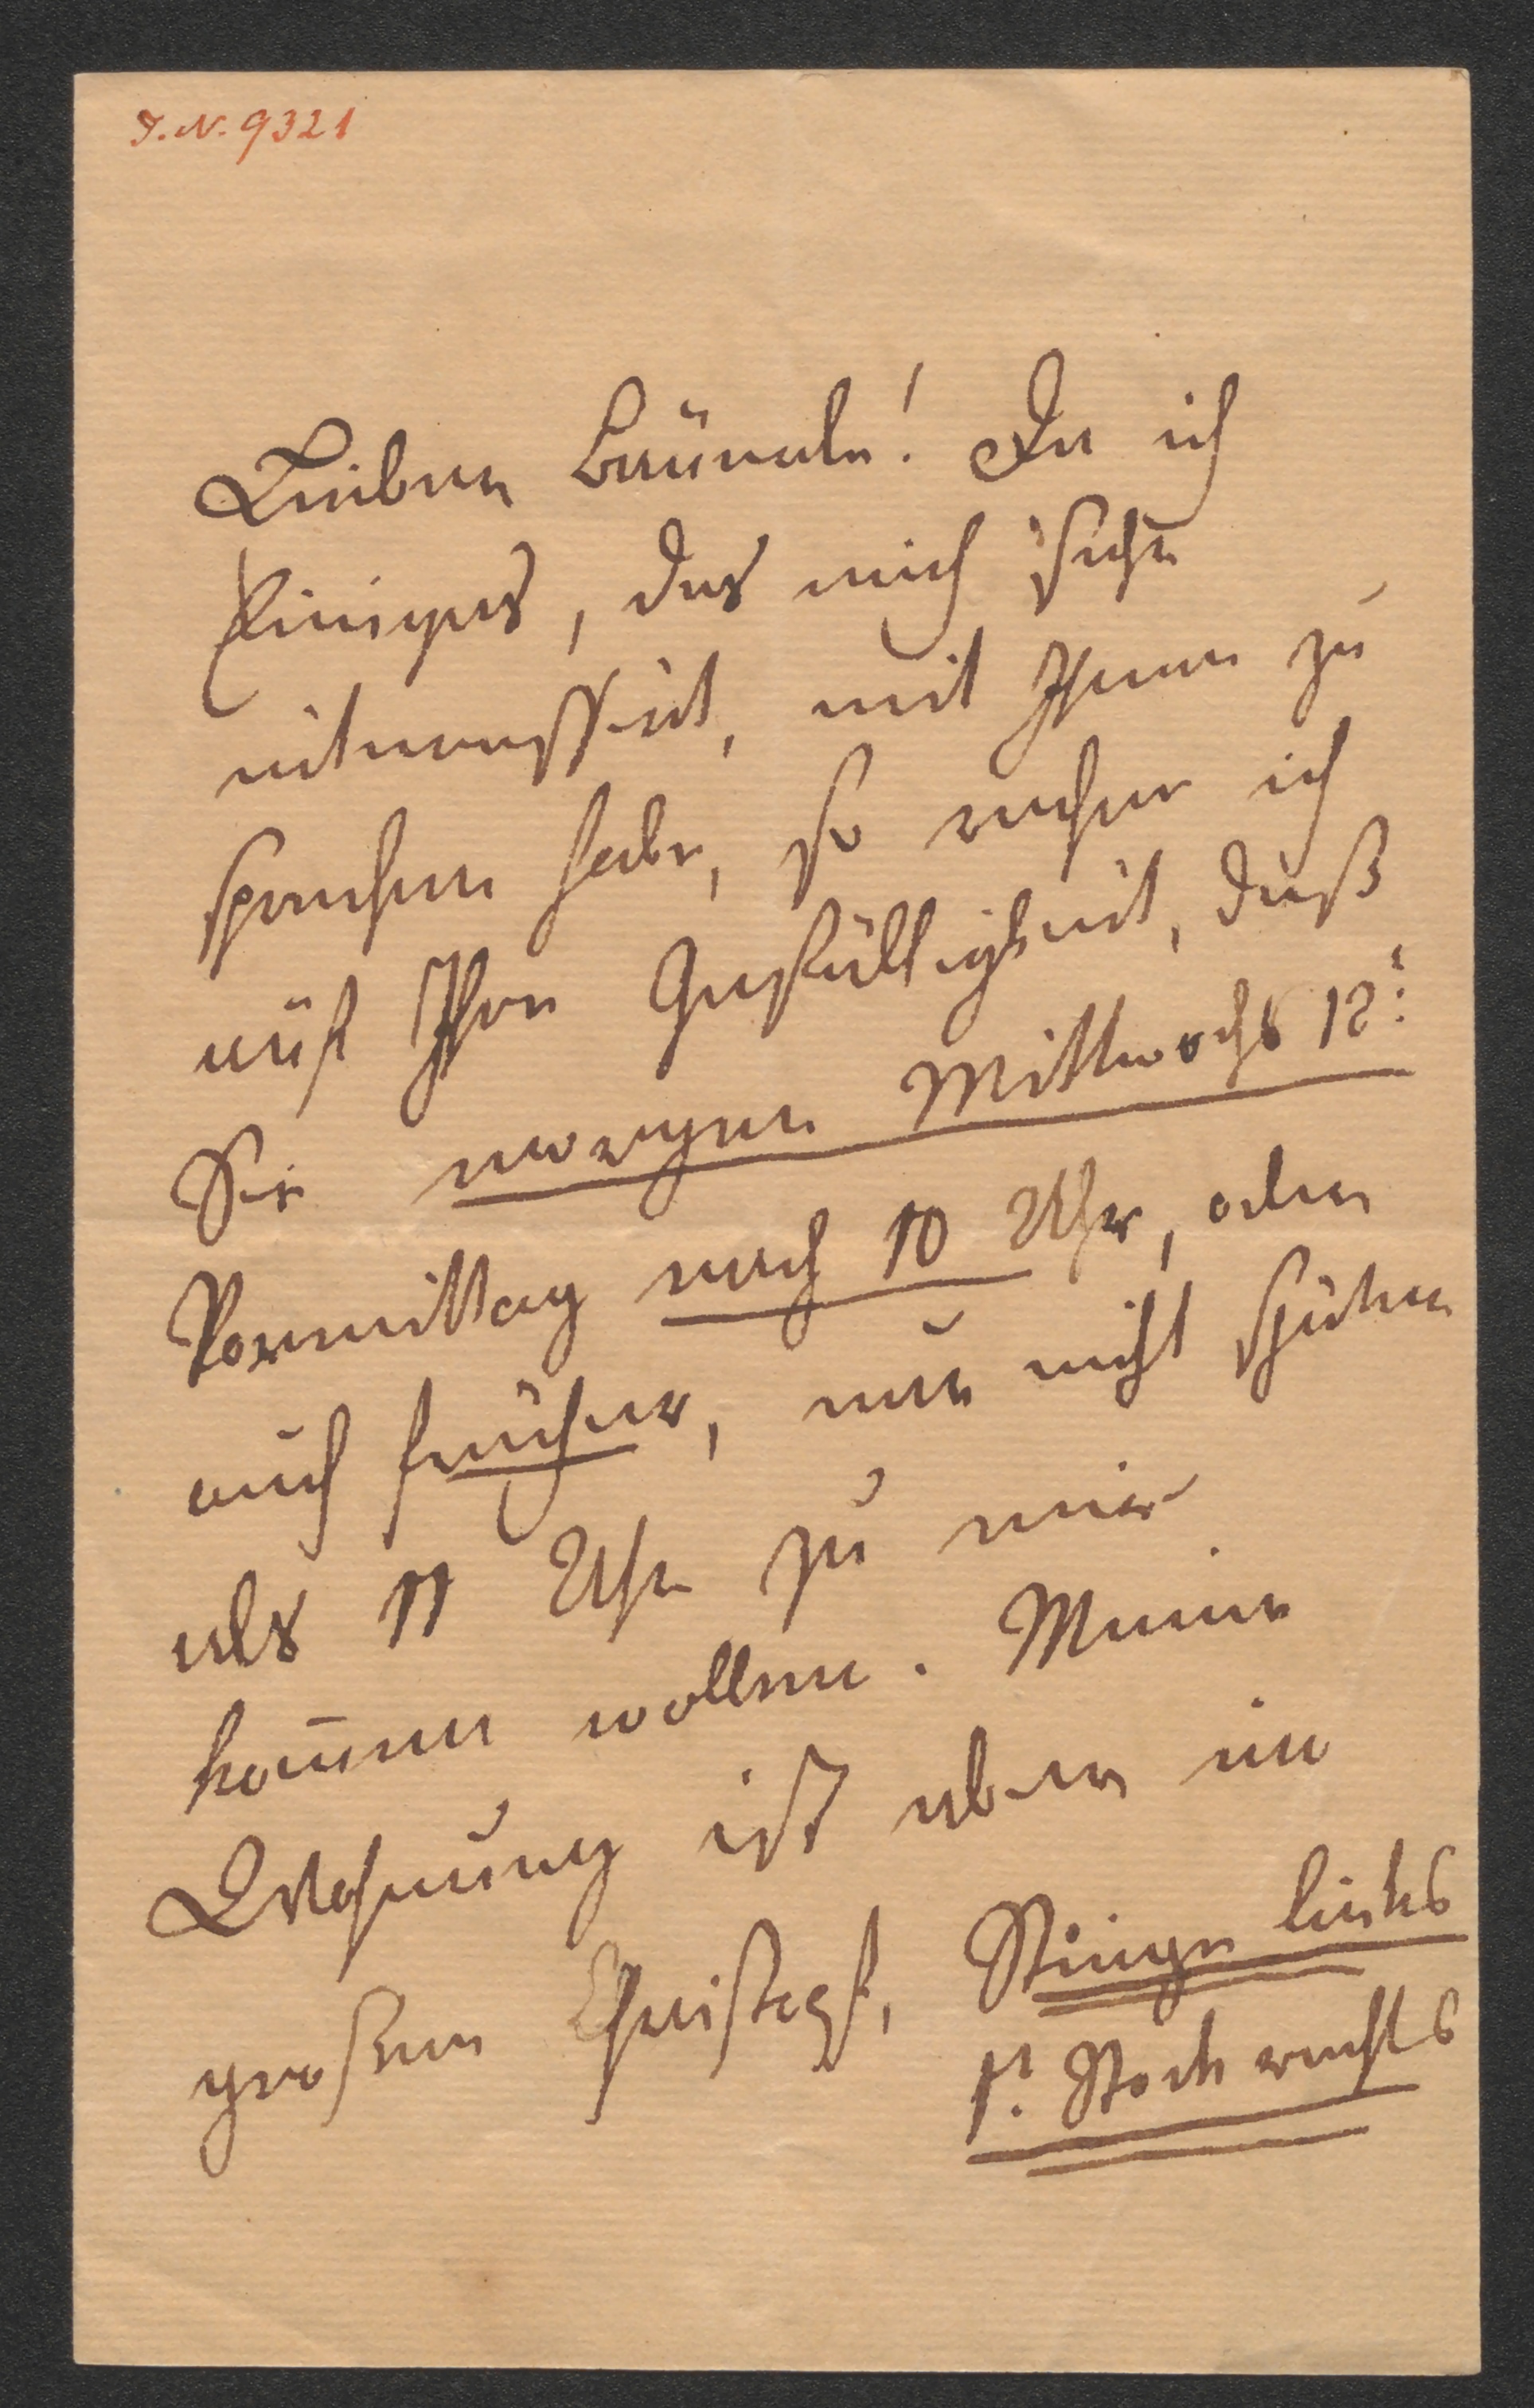 I. N. 9321
Lieber Bäuerle! Da ich
Einiges, das mich sehr
interessirt, mit Ihnen zu
sprechen habe, so rechne ich
auf Ihre Gefälligkeit, daß
Sie morgen Mittwochs 12t:
Vormittag nach 10 Uhr, oder
auch früher, nur nicht später
als 11 Uhr zu mir
kom̄en wollen. Meine
Wohnung ist aber im
großen Christoph, Stiege links
1t. Stock rechts